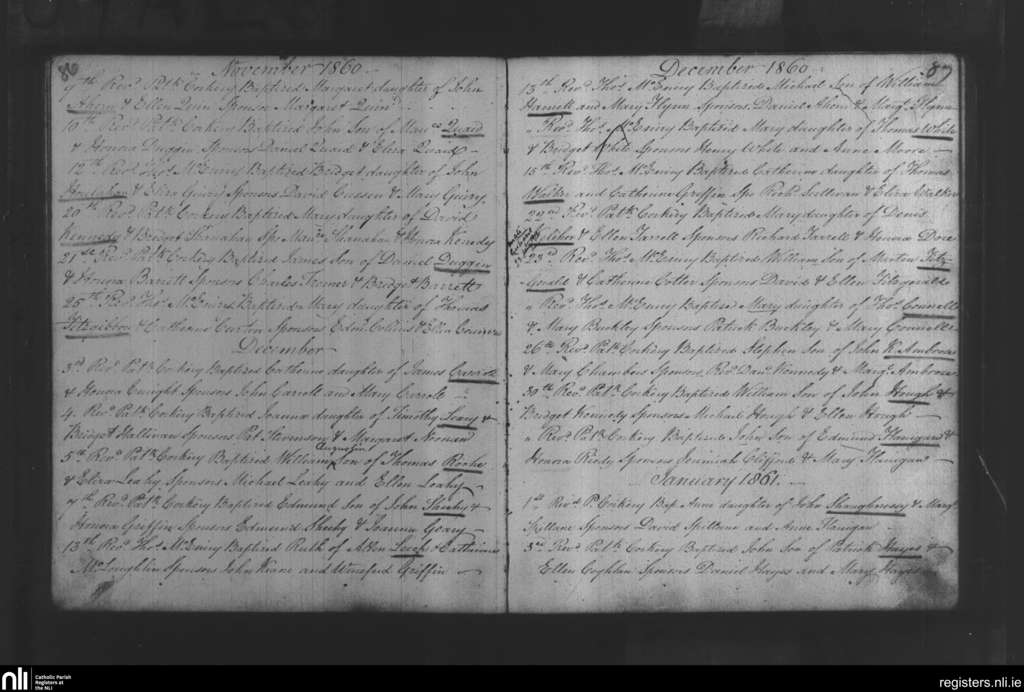 86
November 1860
7th Revd. Patk. Corkery Baptized Margaret daughter of John
Ahern & Ellen Quin Sponsor Margaret Quin
10th Revd. Patk. Corkery Baptized John Son of Mauce Quaid
& Honora Duggin Sponsors Daniel Quaid & Eliza Quaid
12th Revd. Thos. McEniry Baptized Bridget daughter of John
& Eliza Guiry Sponsors David Cussen & Mary Guiry
20th Revd. Patk. Corkery Baptized Mary daughter of David
Kennedy & Bridget Shanahan Sps. Mauce Shanahan & Honora Kenedy
21st Revd. Patk. Corkery Baptized James Son of Daniel Duggin
& Honora Barrett Sponsors Charles & Bridget Barrett
25th Revd. Thos. McEniry Baptized Mary daughter of Thomas
Fitzgibbon & Catherine Curtin Sponsors Edmd. Collins & Ellen Connors
December
3rd Revd. Patk. Corkery Baptized Catherine daughter of James Carroll
& Honora Enright Sponsors John Carroll and Mary Carroll
4. Revd. Patk. Corkery Baptized Joanna daughter of Timothy Leary &
Bridget Hallinan Sponsors Pat Stevenson & Margaret Noonan
5th Revd. Patk. Corkery Baptized William Augustin Son of Thomas Roche
& Eliza Leahy Sponsors Michael Leahy and Ellen Leahy
7th Revd. Patk. Corkery Baptized Edmund Son of John Sheehy &
Honora Griffin Sponsors Edmund Sheehy & Joanna Geary
13th Revd. Thos. McEniry Baptized Ruth of Allen Leech & Catherine
McLoughlin Sponsors John Keane and Winefred Griffin
87
December 1860
13th Revd. Thos. McEniry Baptized Michael Son of William
Harnett and Mary Flynn Sponsors Daniel Ahern & Margt. Flynn
" Revd. Thos. McEniry Baptized Mary daughter of Thomas White
& Bridget White Sponsors Henry White and Anne Moore
15th Revd. Thos. McEniry Baptized Catherine daughter of Thomas
Walker and Catherine Griffin Sps Richd. Sullivan & Eliza Walker
22nd Revd. Patk. Corkery Baptized Mary daughter of Denis
& Ellen Farrell Sponsors Richard Farrell & Honora Dore
23rd Revd. Thos. McEniry Baptized William Son of Martin Fitz-
Gerald & Catherine Cotter Sponsors David & Ellen Fitzgerald
" Revd. Thos. McEniry Baptized Mary daughter of Thos. Connell
& Mary Buckley Sponsors Patrick Buckley & Mary Connell
26th Revd. Patk. Corkery Baptized Stephen Son of John K. Ambrose
& Mary Chambers Sponsors Revd. Danl. Kennedy & Margt. Ambrose
30th Revd. Patk. Corkery Baptized William Son of John Hough &
Bridget Kennedy Sponsors Michael Hough & Ellen Hough
" Revd. Patk. Corkery Baptized John Son of Edmund Flanigan &
Honora Riedy Sponsors Jeremiah Clifford & Mary Flanigan
January 1861.
1st Revd. P. Corkery Bap. Anne daughter of John Shaughnessy & Margt.
Spillane Sponsors David Spillane and Anne Flanigan
3rd Revd. Patk. Corkery Baptized John Son of Patrick Hayes &
Ellen Coghlan Sponsors Daniel Hayes and Mary Hayes
nli
Catholic Parish
Registers at
the NLI
registers.nli.ie